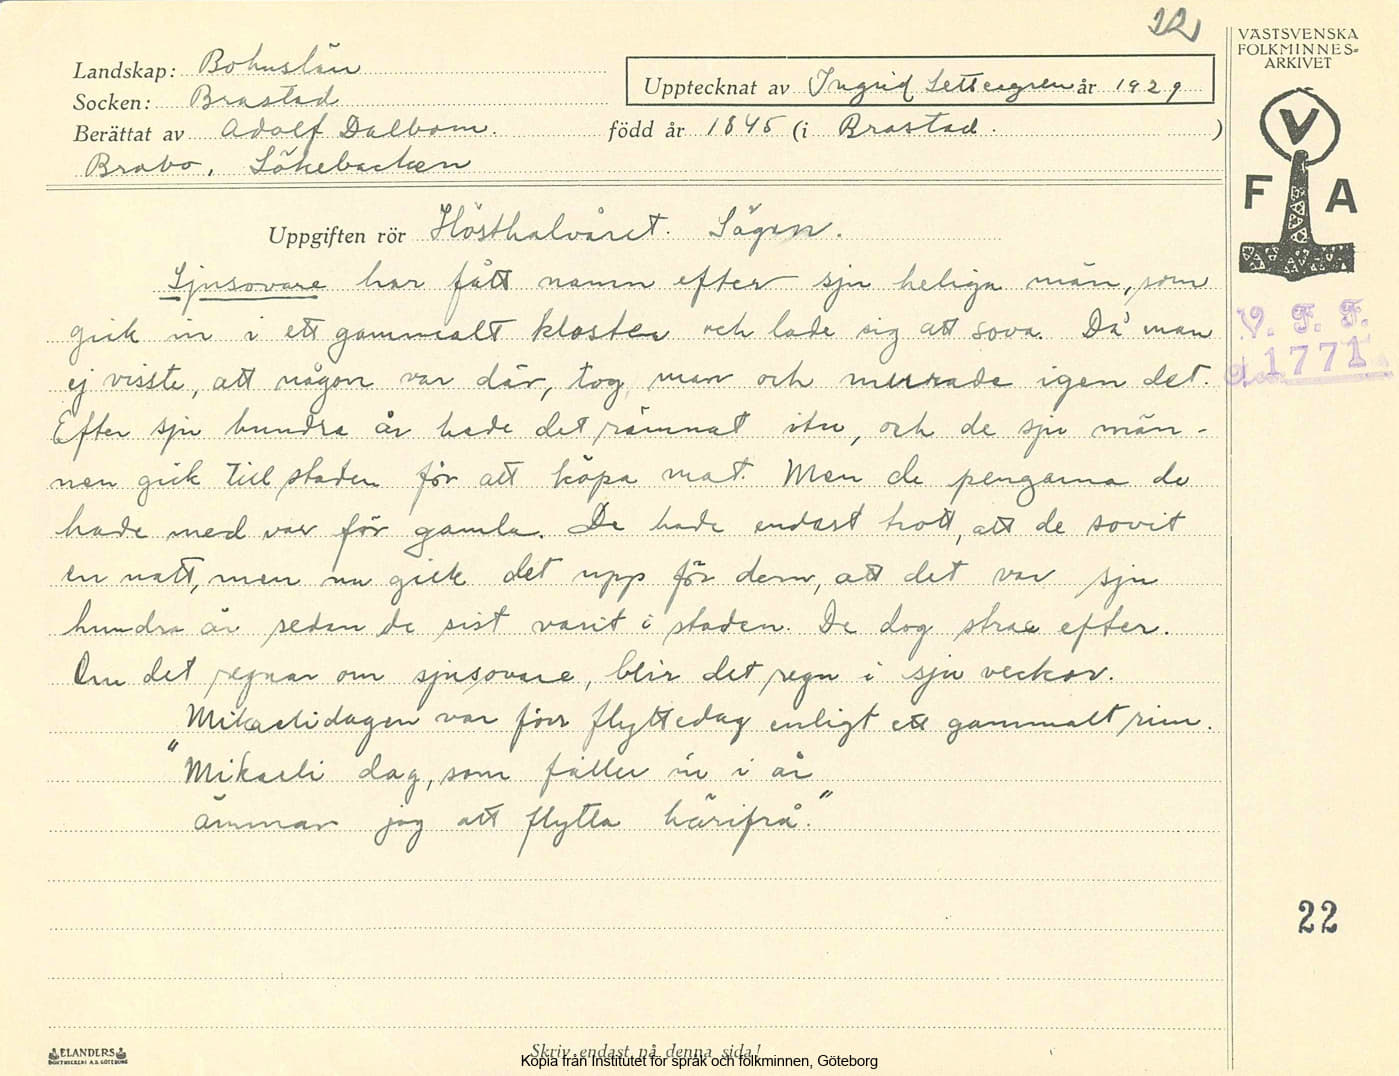 22
VÄSTSVENSKA
FOLKMINNES-
ARKIVET
Landskap: Bohuslän
Socken: Brastad
Upptecknat av Ingrid Settergren år 1929
Berättat av Adolf Dalbom. född år 1845 (i Brastad. )
Brabo, Sökebacken
V
F A
Uppgiften rör Hösthalvåret. Sägen.
V. F. F.
1771
Sjusovare har fått namn efter sju heliga män, som
gick in i ett gammalt kloster och lade sig att sova. Då man
ej visste, att någon var där, tog man och murade igen det.
Efter sju hundra år hade det rämnat itu, och de sju män-
nen gick till staden för att köpa mat. Men de pengarna de
hade med var för gamla. De hade endast trott, att de sovit
en natt, men nu gick det upp för dem, att det var sju
hundra år sedan de sist varit i staden. De dog strax efter.
Om det regnar om sjusovare, blir det regn i sju veckor.
Mikaelidagen var förr flyttedag enligt ett gammalt rim.
"Mikaeli dag, som faller in i år
ämnar jag att flytta härifrå."
22
ELANDERS
BOKTRYCKERI A.B. GÖTEBORG
Skriv endast på denna sida!
Kopia från Institutet för språk och folkminnen, Göteborg